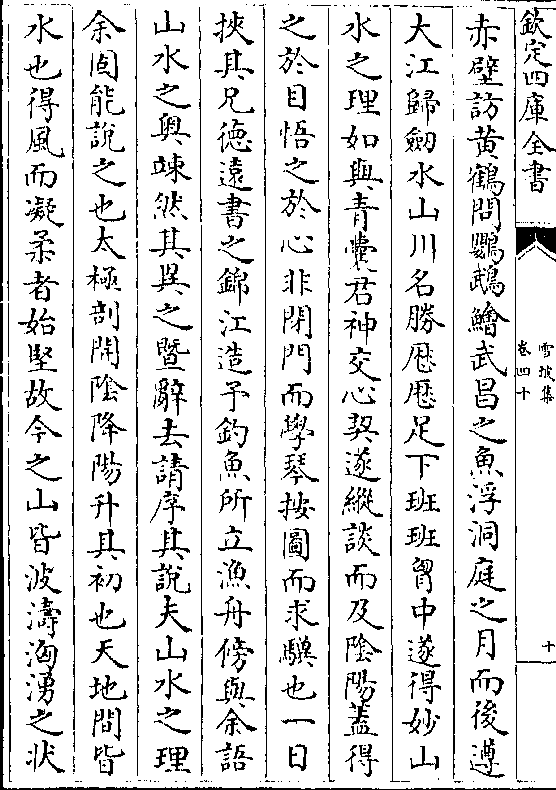 欽定四庫全書
雪坡集
卷四十
十
赤壁訪黄鶴問鸚鵡鱠武昌之魚浮洞庭之月而後遵
大江歸劒水山川名勝歴歴足下班班胷中遂得妙山
水之理如與青囊君神交心契遂縱談而及陰陽蓋得
之於目悟之於心非閉門而學琴按圖而求驥也一日
挾其兄徳逺書之錦江造予釣魚所立漁舟傍與余語
山水之奥竦然其異之暨辭去請序其說夫山水之理
余固能說之也太極剖開陰降陽升其初也天地間皆
水也得風而凝柔者始堅故今之山皆波濤洶湧之狀